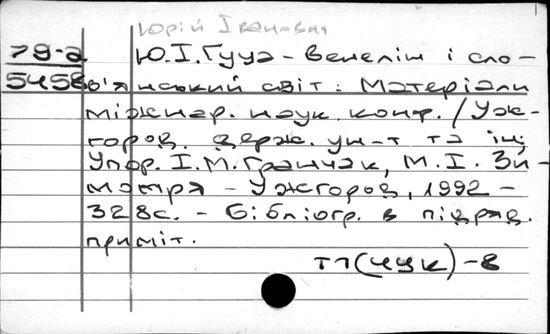 Юрій Іванович
79-а Ю.І.Гуца-Венелін і сло-
5458 в'янський світ: Матеріали
міжнар. наук. конф. / Уж-
город. держ. ун-т та ін;
Упор. І.М.Гранчак, М.І. Зи-
момря - Ужгород, 1992 -
328с. - Бібліогр. в підряд.
приміт.
ТП(ЧУК)-8